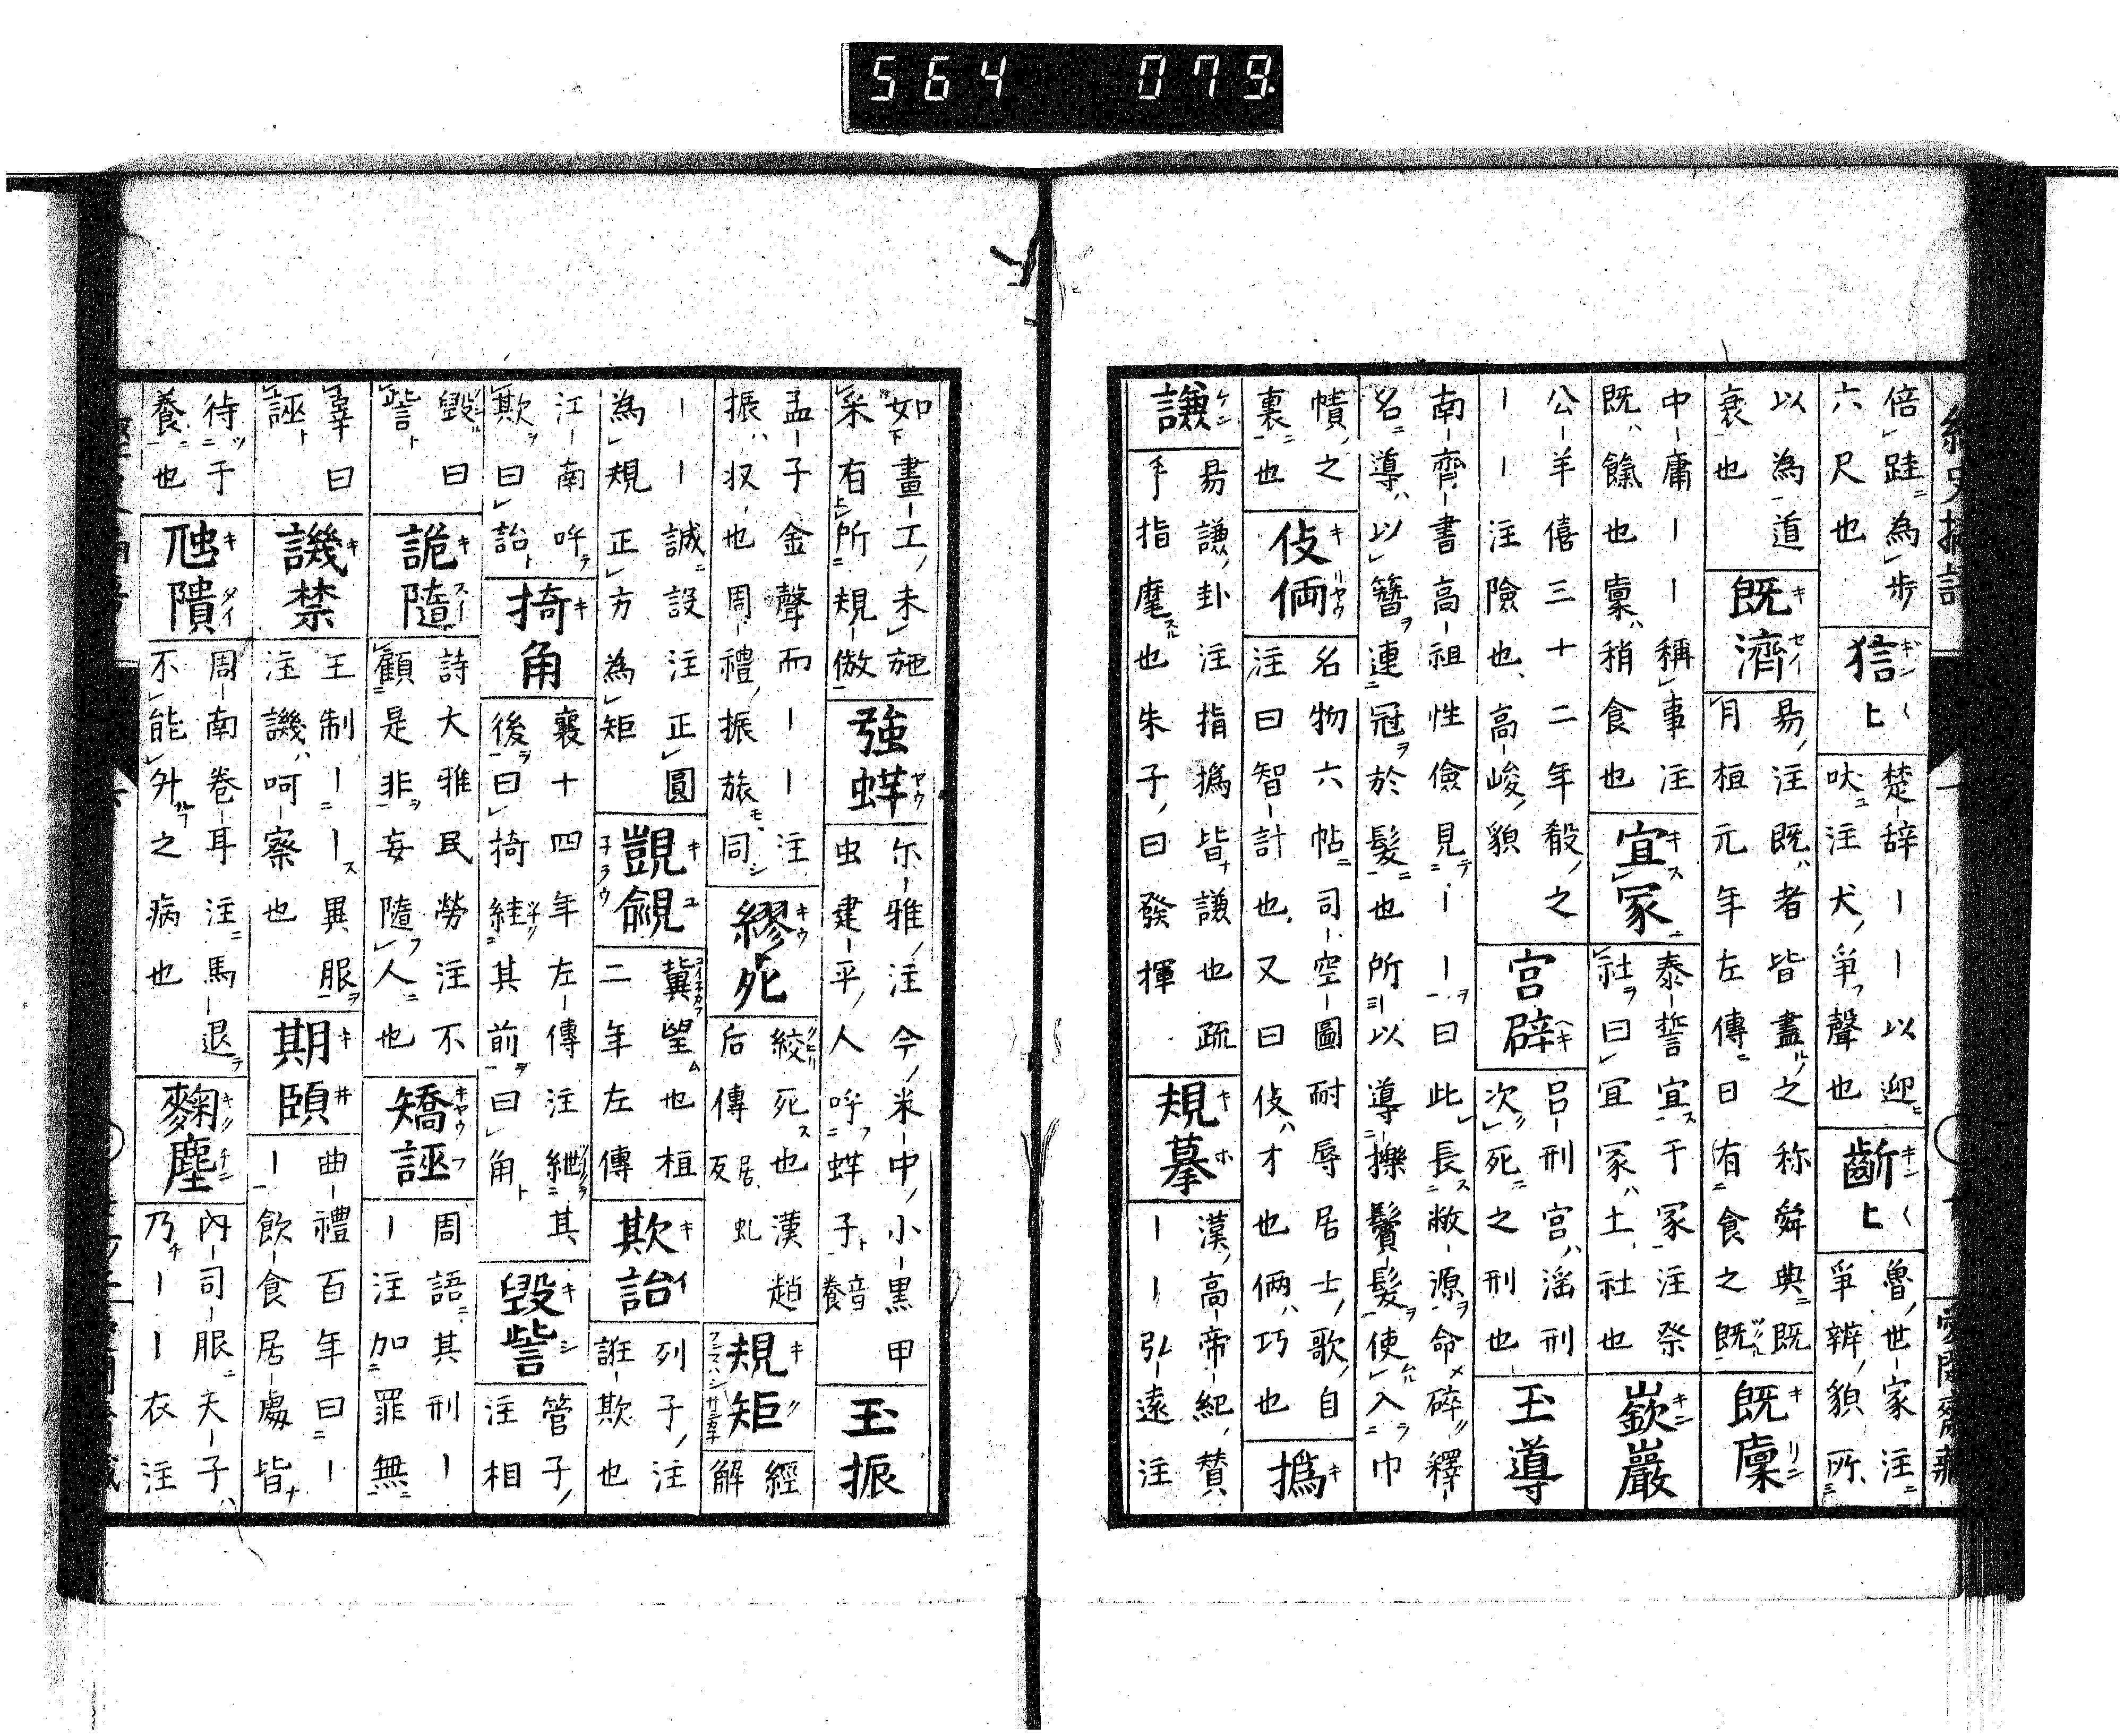 564 079.
倍跬為歩
六尺也
狺〱
楚辞ーー以迎
吠注犬爭聲也
齗〱
魯世家注
爭辨貌所
以為道
衰也
既濟
易注既者皆盡之称舜典既
月桓元年左傳日有食之既
既廩
中庸ーー稱事注
既餘也稟稍食也
宜冢
泰誓宜于冢注祭
社曰宜冢土社也
嶔巖
公羊僖三十二年殽之
ーー注險也高峻貌
宮辟
呂刑宮淫刑
次死之刑也
玉導
南齊書高祖性儉見ーー曰此長敝源命碎釋
名導以簪連冠於髮也所以導擽鬢髮使入巾
幘之
裏也
伎倆
名物六帖司空圖耐辱居士歌自
注曰智計也又曰伎才也倆巧也
撝
謙
易謙卦注指撝皆謙也疏
手指麾也朱子曰發揮
規摹
漢高帝紀贊
ーー弘遠注
如畫工未施
采有所規倣
強蛘
尓雅注今米中小黒甲
虫建平人呼蛘子音養
玉振
孟子金聲而ーー注
振収也周禮振旅同
繆死
絞死也漢趙
后傳居虬反
規矩
經
解
ーー誠設注正圓
為規正方為矩
覬覦
冀望也桓
二年左傳
欺詒
列子注
誑欺也
江南呼
欺曰詒
掎角
襄十四年左傳注紲其
後曰掎絓其前曰角
毀訾
管子
注相
毀曰
訾
詭隨
詩大雅民勞注不
顧是非妄隨人也
矯誣
周語其刑ー
ー注加罪無
辜曰
誣
譏禁
王制ーー異服
注譏呵察也
期頤
曲禮百年曰ー
ー飲食居處皆
待于
養也
虺隤
周南卷耳注馬退
不能升之病也
麴塵
內司服夫子
乃ーー衣注